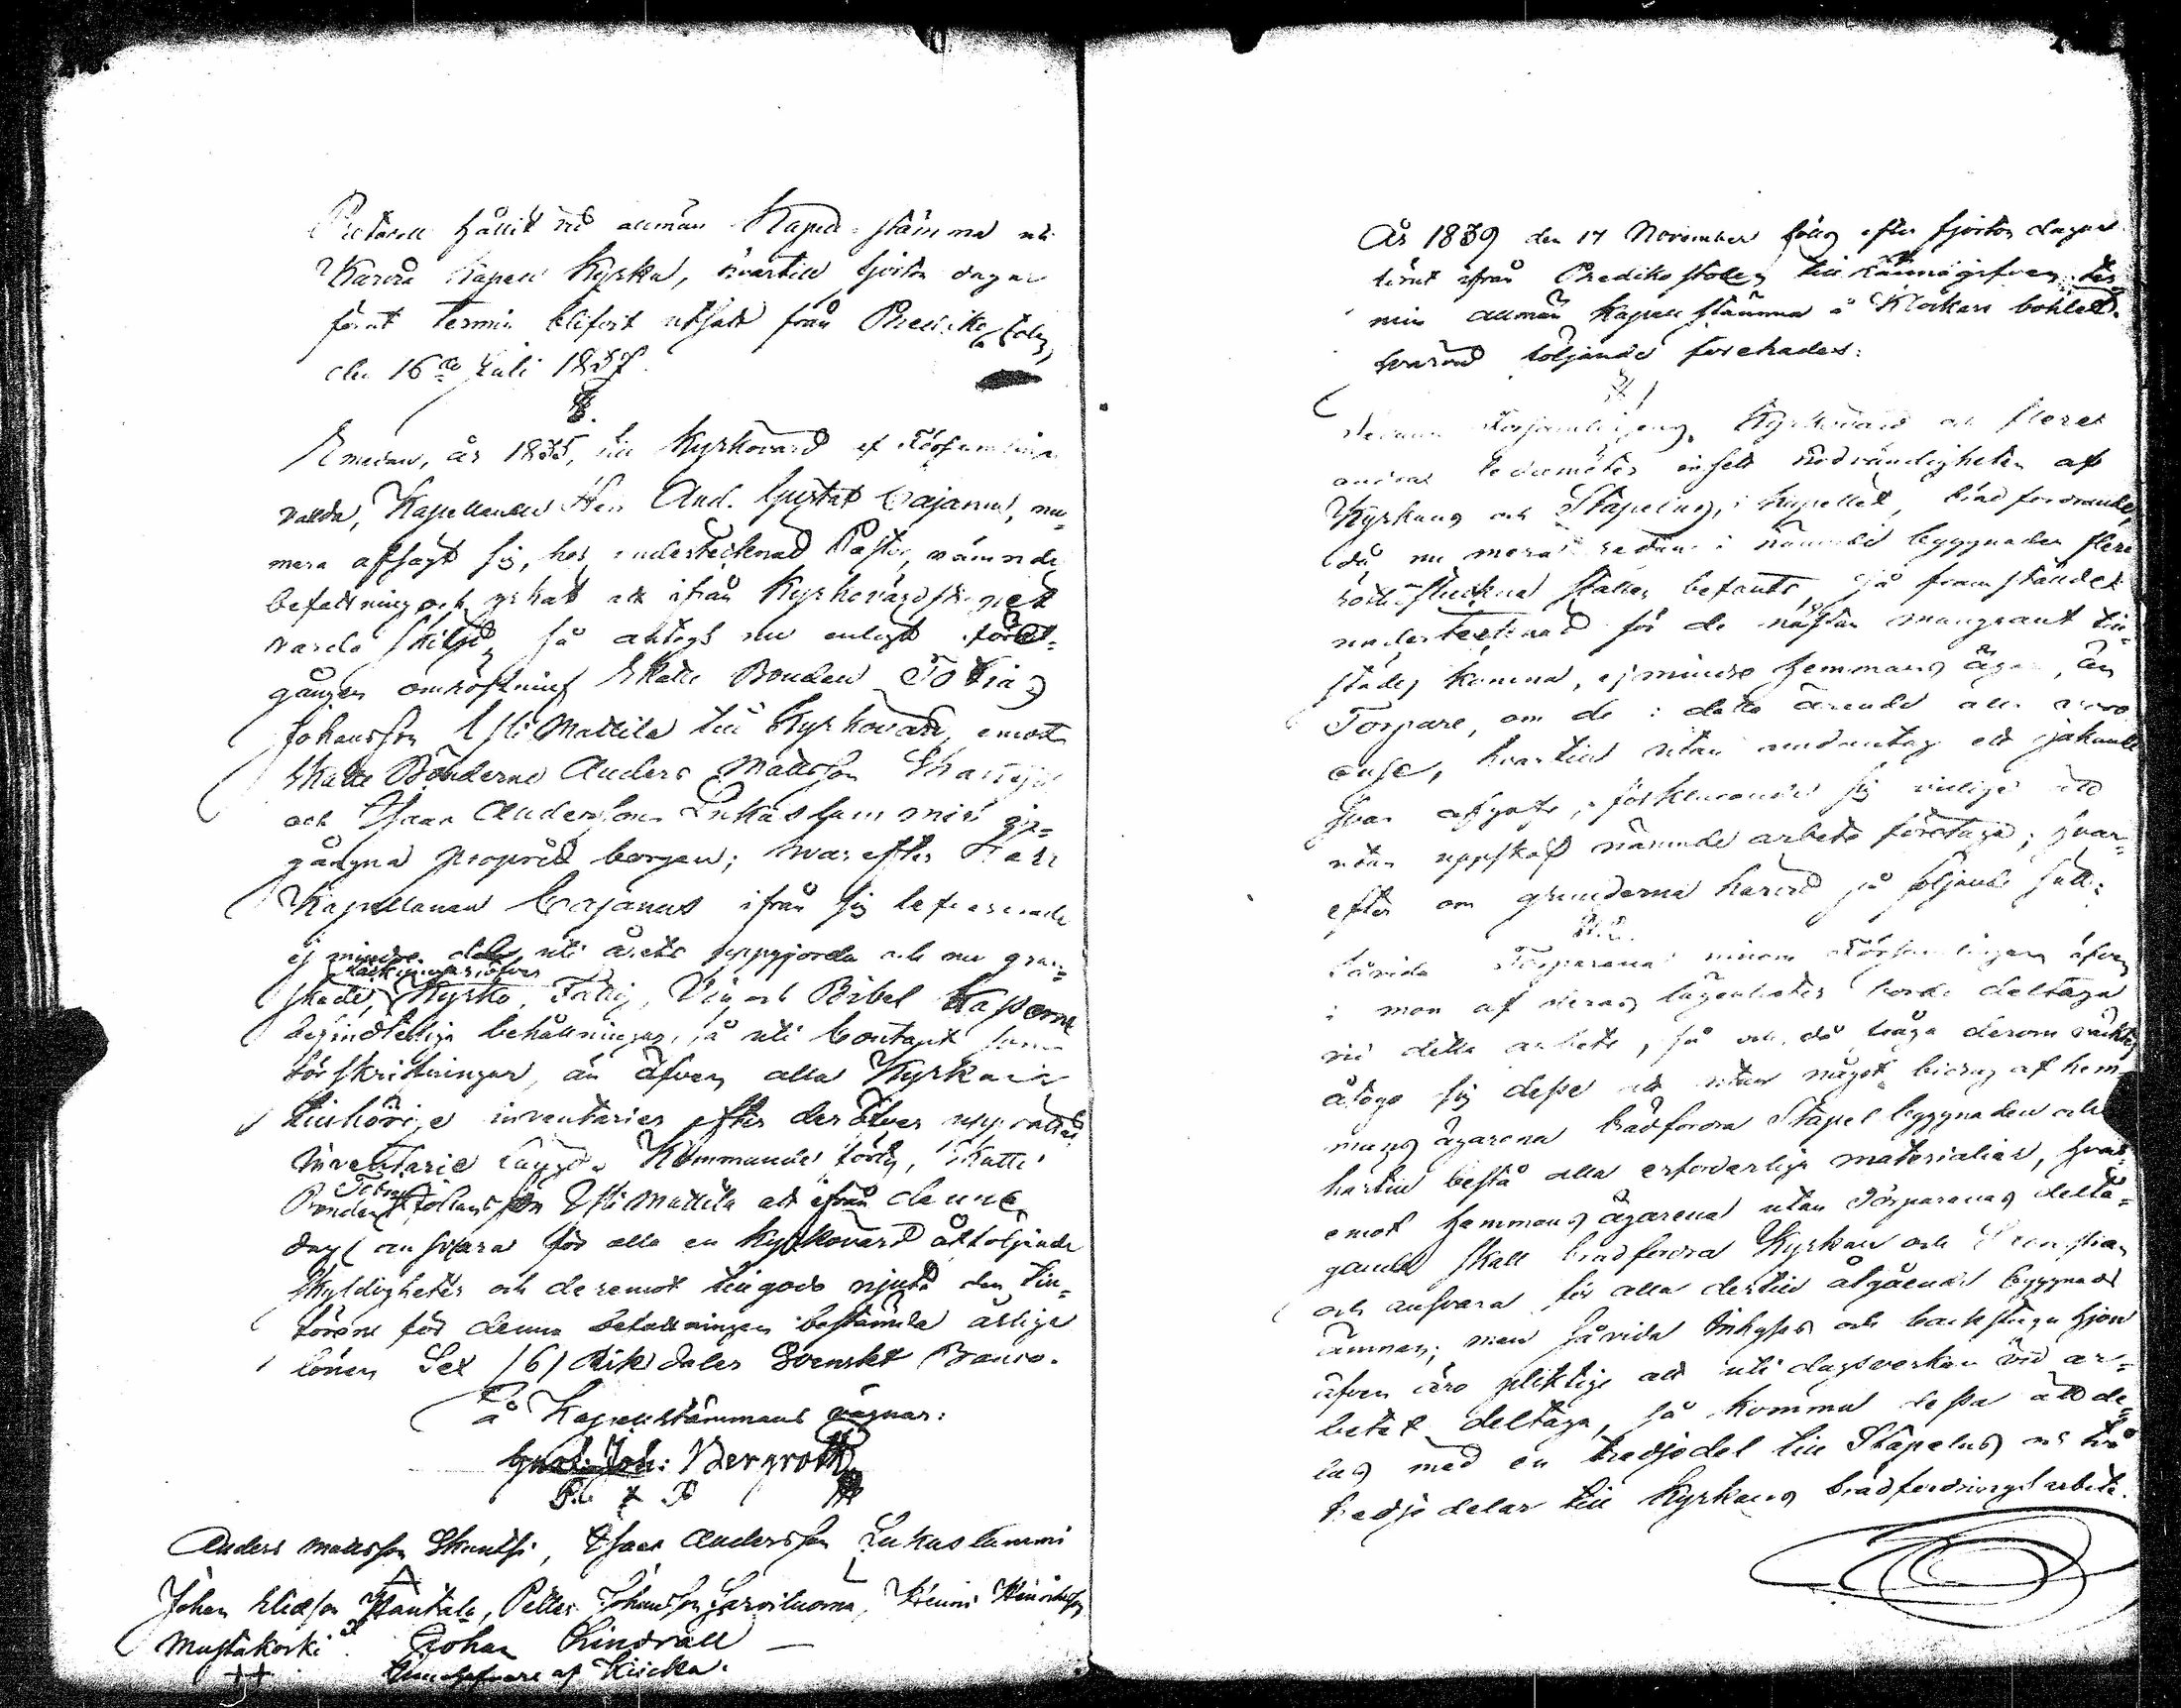 Protocoll hållit vid allmän Kapell-stämma uti
Karvia Kapell Kyrka, hvartill fjorton dagar
förut termin blifvit utsatt från Predikostolen,
den 16de Juli 1837.
§.
Emedan, år 1835, till Kyrkovärd af Församlingen
valda, Kapellanen Herr And. Gustaf Cajanus, nu-
mera afsagt sig, hos undertecknad Pastor, nämnde
befattning och yrkat att ifrån Kyrkovärdskapet
varda skild, så antogs nu enligt föret-
gången omröstning Skatte Bonden Tobias
Johansson Yli Mattila till Kyrkovärd, emot
Skatte Bönderne Anders Mattsson Skantsi
och Isaac Andersson Lukaslammi in-
gångna proprie borgen; hvarefter Herr
Kapellanen Cajanus ifrån sig levererade
ej mindre de uti årets uppgjorda och nu gran-
skade, räkningar öfver Kyrko, Fattig, Vin och Bibel Kassorne
befindtelige behållningar, så uti Contant som
förskrifningar, än äfven alla Kyrkan
tillhörige inventarier efter deröfver upprättad
Inventarie Längd. Kommande förty, Skatte
Bonden Tobias Johansson Yli Mattila att ifrån denne
dag ansvara för alla en Kyrkovärd åtföljande
skyldigheter och deremot tillgodo njuta den till-
förene för denna befattningen bestämda årliga
lönen Sex /6/ Riksdaler Svenskt Banco.
På Kapellstämmans vägnar:
Gust: Joh: Bergroth
Anders Mattsson Skantsi, Isaac Andersson Lukaslammi
Johan Eliasson Hautala, Petter Johansson Sarviluoma, Henric Henricsson
Mustakorki Johan Lindvall
af Kiicka.
År 1839 den 17 November höllts efter fjorton dagar
förut ifrån Predikostolen tillkännagifven ter-
min allmän Kapellstämma å Klockare bohlet.
hvarvid följande förehades:
§. 1
Församlingens Kyrkovärd och flere
andra Ledamöter insett nödvändigheten af
Kyrkans och Stapelns, i Kapellet, brädfordrande,
då nu mera redan i nämnde byggnader flere
rötstuckna ställen befants, så framstälde
undertecknad för de nästan mangrant till-
städes komna, ej mindre Hemmans ägare, än
Torpare, om de i detta ärende alla voro
ense, hvartill utan undantag ett jakande
svar afgafs, förklarande sig villige att
utan uppskof nämnde arbete företaga; hvar-
efter om grunderna härvid på följande sätt:
§. 2.
Såvida Torparena inom Församlingen äfven
i mon af deras lägenheter borde deltaga
vid detta arbete, så och, då fråga derom väcktes
åtogo sig desse att utan något bidrag af hem-
mans ägarena brädfodra Stapel byggnaden och
härtill bestå alla erforderliga materialier, hvar-
emot Hemmans ägarena utan Torparenas delta-
gande skall brädfodra Kyrkan och
och ansvara för alla dertill åtgående byggnads
ämnen; men såvida Inhyses och backstugu hjon
äfven äro pliktige att uti dagsverken vid ar-
betet deltaga, så komma dessa att de-
las med en tredjedel till Stapelns och två
tredje delar till Kyrkans brädfordrings arbete.